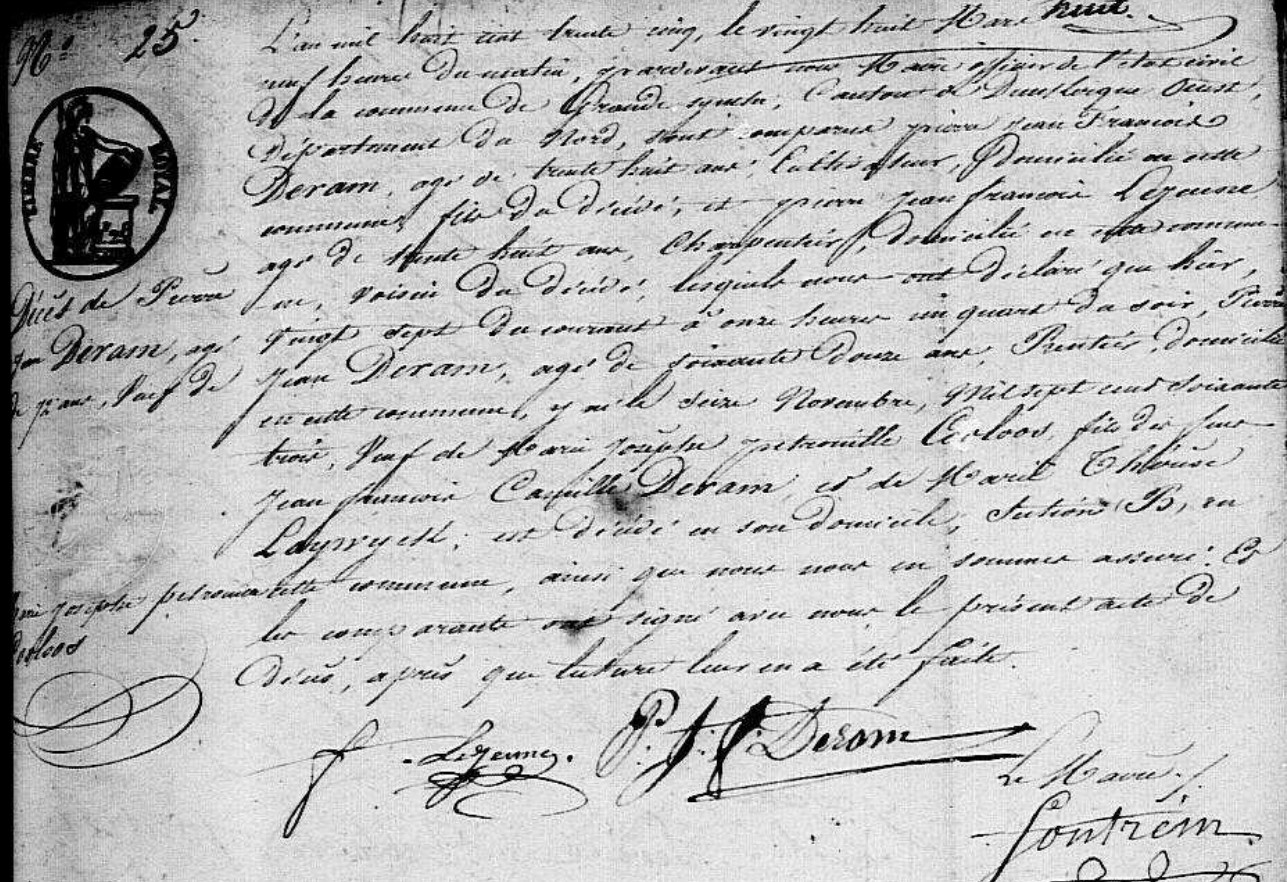 N.° 25.
TIMBRE ROYAL
Décès de Pierre
Jean Deram, agé
de 72 ans, Veuf de
Marie Josephe petronille
Cooloos
L'an mil huit cent trente cinq, le vingt huit Mars
neuf heures du matin, pardevant nous Maire officier de l'état civil
de la commune de Grande synthe, Canton de Dunkerque Ouest,
Département du Nord, sont comparus pierre Jean François
Deram, agé de trente huit ans, Cultivateur, domicilié en cette
commune, fils du décédé, et pierre jean françois Lejeune
agé de trente huit ans, Charpentier, domicilié en cette commu-
ne, voisin du décédé, lesquels nous ont déclaré que hier,
vingt sept du courant à onze heures un quart du soir, Pierre
Jean Deram, agé de soixante douze ans, Rentier, domicilié
en cette commune, y né le seize Novembre, Mil sept cent soixante
trois, Veuf de Marie Josephe petronille Cooloos, fils de feus
Jean françois Camille Deram, et de Marie Thérèse
est décédé en son domicile, Section B, en
cette commune, ainsi que nous nous en sommes assuré. Et
les comparants ont signé avec nous le présent acte de
décès, après que lecture leur en a été faite.
f Lejeune. P. J. f. Deram
Le Maire